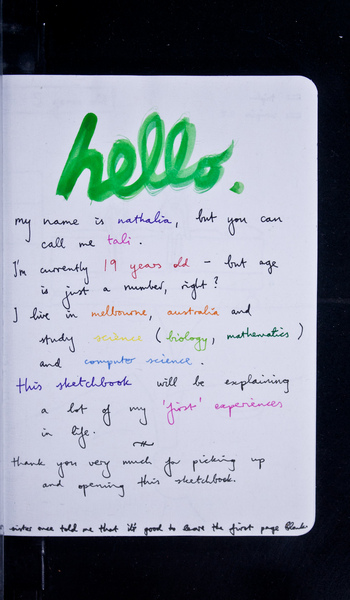 hello.
my name is nathalia, but you can
call me tali.
I'm currently 19 years old - but age
is just a number, right?
I live in melbourne, australia and
study science (biology, mathematics)
and computer science.
this sketchbook will be explaining
a lot of my 'first' experiences
in life.
thank you very much for picking up
and opening this sketchbook.
sister once told me that it's good to leave the first page blank